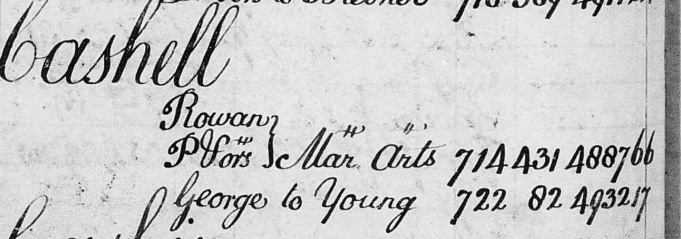 Cashell
Rowan
& ors Mar Arts 714 431 488766
George to Young 722 82 493217